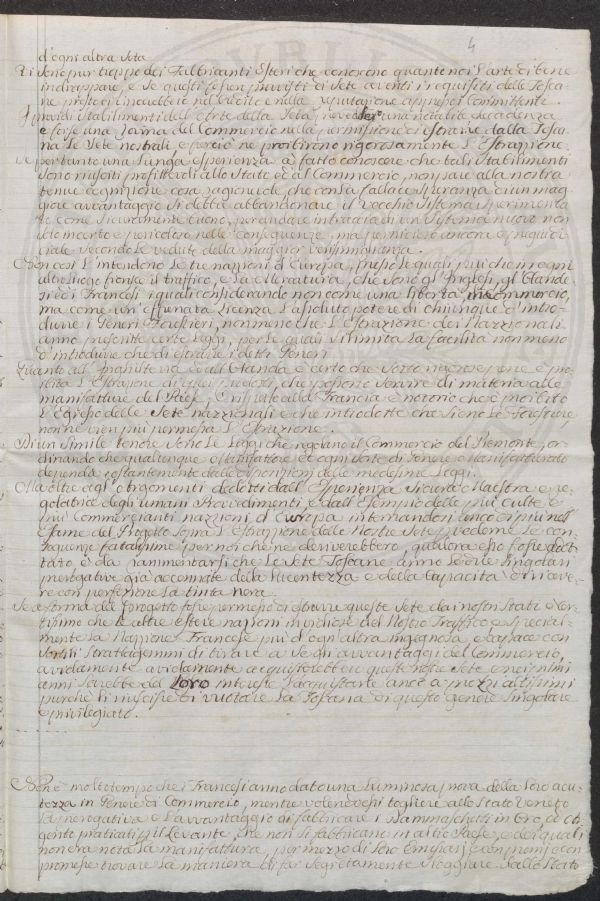 4
d'ogni altra Seta
Vi sono pur troppo dei Fabbricanti Esteri che conoscono quanto noi l'arte di bene
indrappare, e se questi fossero provvisti di Sete aventi i requisiti delle Tosca-
ne presto ci vincerebbero nel credito e nella reputazione appresso i Committenti.
I provvidi Stabilimenti dell'Arte della Seta, una notabile decadenza
e forse una rovina del Commercio nella permissione di estrarre dalla Tosca-
na le Sete nostrali e perciò ne proibirono rigorosamente l'Estrazione.
Se pertanto una lunga esperienza à fatto conoscere che tali Stabilimenti
sono riusciti profittevoli allo Stato ed al Commercio, non pare alla nostra
tenue cognizione cosa ragionevole, che con la fallace speranza d'un mag-
giore avvantaggio si debba abbandonare il vecchio Sistema sperimenta-
to come sicuramente buono, per andare in traccia di un Sistema nuovo non
solo incerto e pericoloso nelle conseguenze, ma pernicioso ancora e pregiudi-
ciale secondo le vedute della maggior verisimiglianza.
Non così l'intendono le tre nazioni d'Europa, presso le quali più che in ogni
altro luogo fiorisce il traffico, e la che sono gl'Inglesi, gl'Olande-
si ed i Francesi i quali considerando non come una libertà in Commercio,
ma come un'effrenata licenza l'assoluto potere di chiunque d'intro-
durre i Generi Forestieri, non meno che l'Estrazione dei Nazzionali
anno prescritte certe Leggi, per le quali si limita la facilità non meno
d'introdurre che di estrarre i detti Generi
Quanto all'Inghilterra e all'Olanda è certo che sotto rigorose pene è proi-
bita l'Estrazione di quei prodotti, che possono servire di materia alle
manifatture del Paese, e rispetto alla Francia è notorio che è proibito
l'Egresso delle Sete nazzionali e che introdotte che sieno le Forestiere
non ne vien più permessa l'Estrazione.
Di un simile tenore sono le Leggi che regolano il Commercio del Piemonte, or-
dinando che qualunque Manifattore ed ogni sorte di Genere o Manifatturato
dependa costantemente dalle disposizioni delle medesime Leggi.
Ma oltre agl'Argomenti dedotti dall'Esperienza sicura Maestra e re-
golatrice degl'umani Provvedimenti, e dall'Esempio delle più culte e
più Commercianti nazzioni d'Europa internandosi ancora di più nell'
Esame del Progetto sopra l'Estrazione delle Nostre Sete per vederne le con-
seguenze fatalissime per noi che ne deriverebbero, qualora esso fosse adot-
tato è da rammentarsi che le Sete Toscane anno le due singolari
prerogative già accennate della lucentezza e della capacità di riceve-
re con perfezione la tinta nera.
Se a forma del Progetto fosse permesso di estrarre queste Sete dai nostri Stati è cer-
tissimo che le altre estere nazioni invidiose del Nostro Traffico e special-
mente la Nazzione Francese più d'ogni altra ingegnosa e capace con
sottili Strattagemmi di tirare a se gli avvantaggi del Commercio,
avidamente avidamente acquisterebbero queste nostre Sete e nei primi
anni sarebbe del loro interesse l'acquistarle anco a prezzi altissimi
purchè li riuscisse di vuotare la Toscana di questo genere singolare
e privilegiato.
Non è molto tempo che i Francesi anno dato una luminosa prova della loro acu-
tezza in Genere di Commercio, mentre volendo essi togliere allo Stato Veneto
la prerogativa e l'avvantaggio di fabbricare i Dammaschetti in Oro, ed Ar-
gento praticati per il Levante, che non si fabbricano in altro Paese, e dei quali
non era nota la manifattura, per mezzo di loro Emissarj e con premj e con
promesse trovare la maniera di far segretamente sloggiare dallo Stato